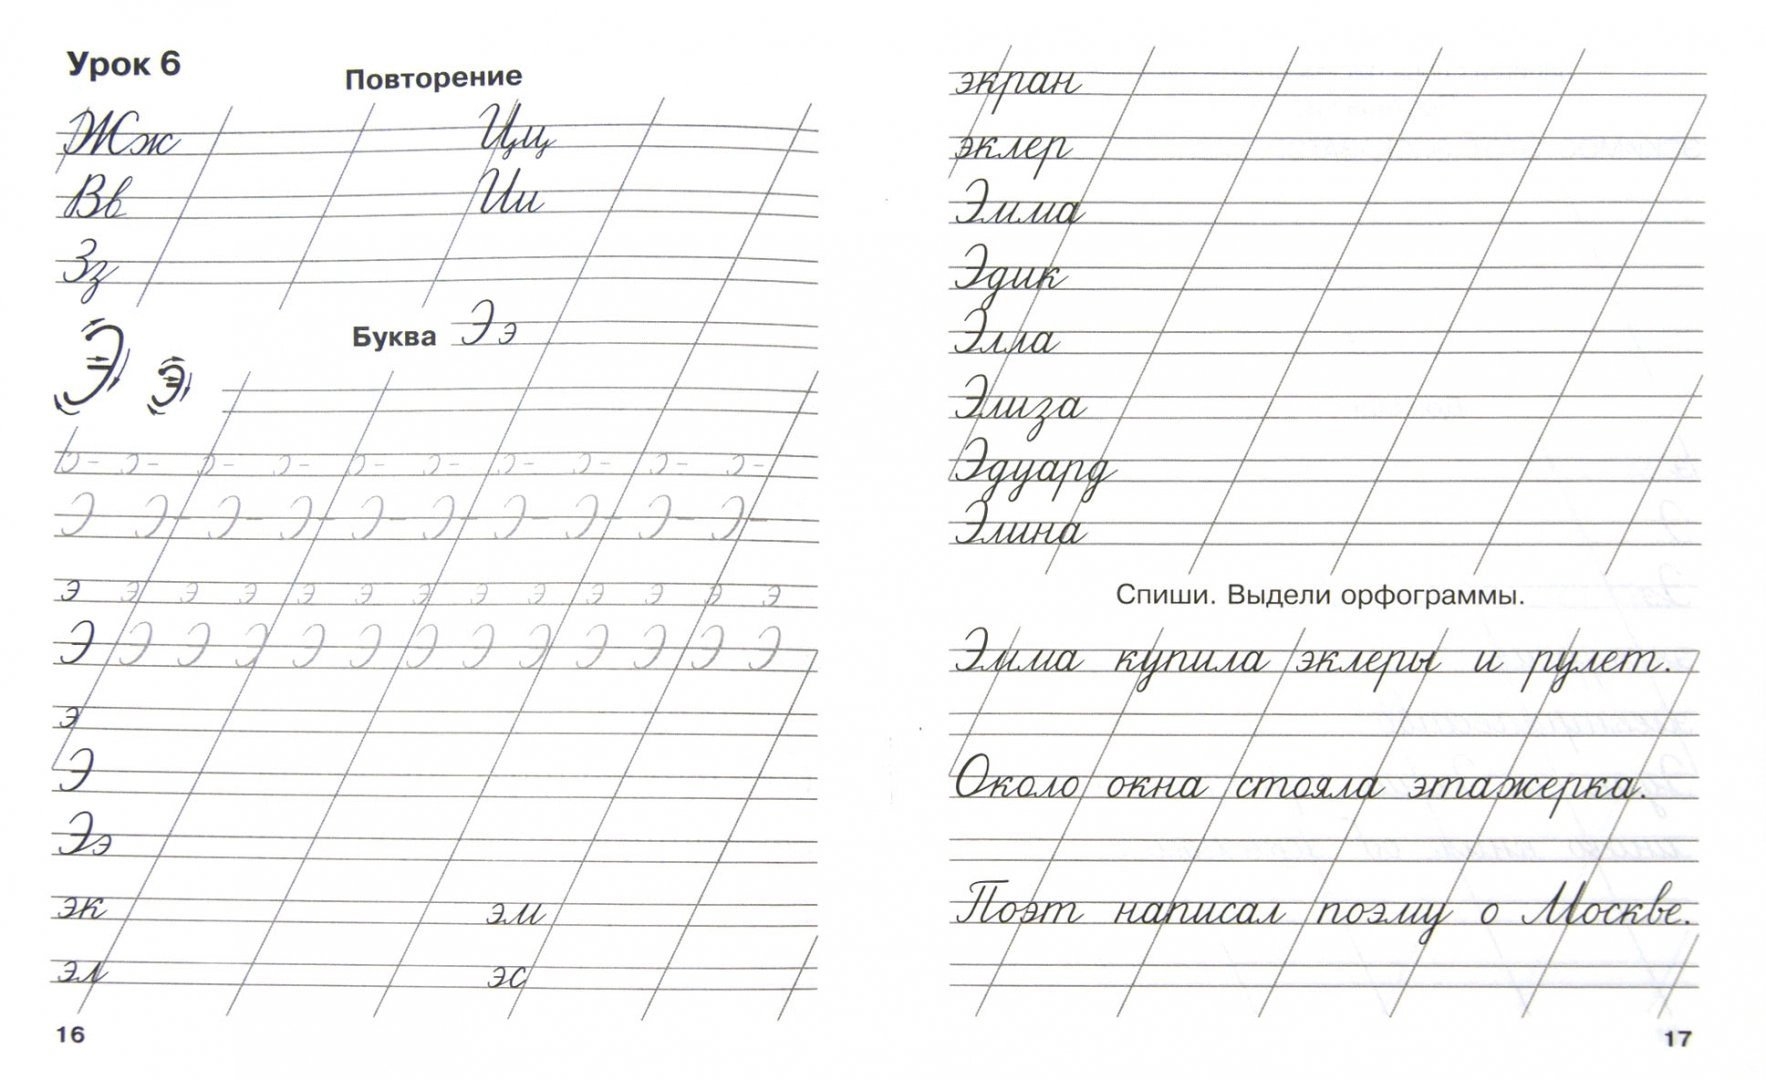 Урок 6
Повторение
Жж Цц
Вв Ии
Зз
Буква Ээ
Э э
Э Э Э Э Э Э Э Э Э Э
э э э э э э э э э э э э э
Э Э Э Э Э Э Э Э Э Э Э Э Э
э
Э
Ээ
эк эм
эл эс
16
экран
эклер
Эмма
Эдик
Элла
Элиза
Эдуард
Элина
Спиши. Выдели орфограммы.
Эмма купила эклеры и рулет.
Около окна стояла этажерка.
Поэт написал поэму о Москве.
17